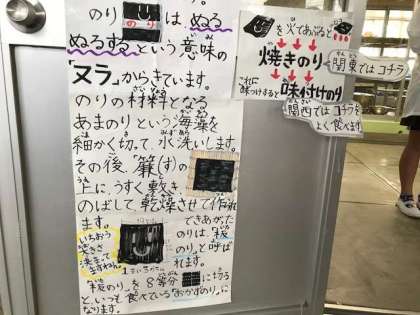 のり は ぬる
ぬるするという意味の
「ヌラ」からきています。
のりの材料となる
あまのりという海藻を
細かく切って、水洗いします。
その後、「簾(す)の
上に、うすく敷き
のばして乾燥させて作れ
ます。
できあがた
のりは、「板
のり」と呼ば
れます。
いちおう
大きさ
決まって
「板のり」を8等分 に切る
と、いつも食べている「おかずのり」に
なります。
を火であぶると
焼きのり
関東ではコチラ
これに
味つけすると
味付けのり
関西ではコチラを
よく食べます